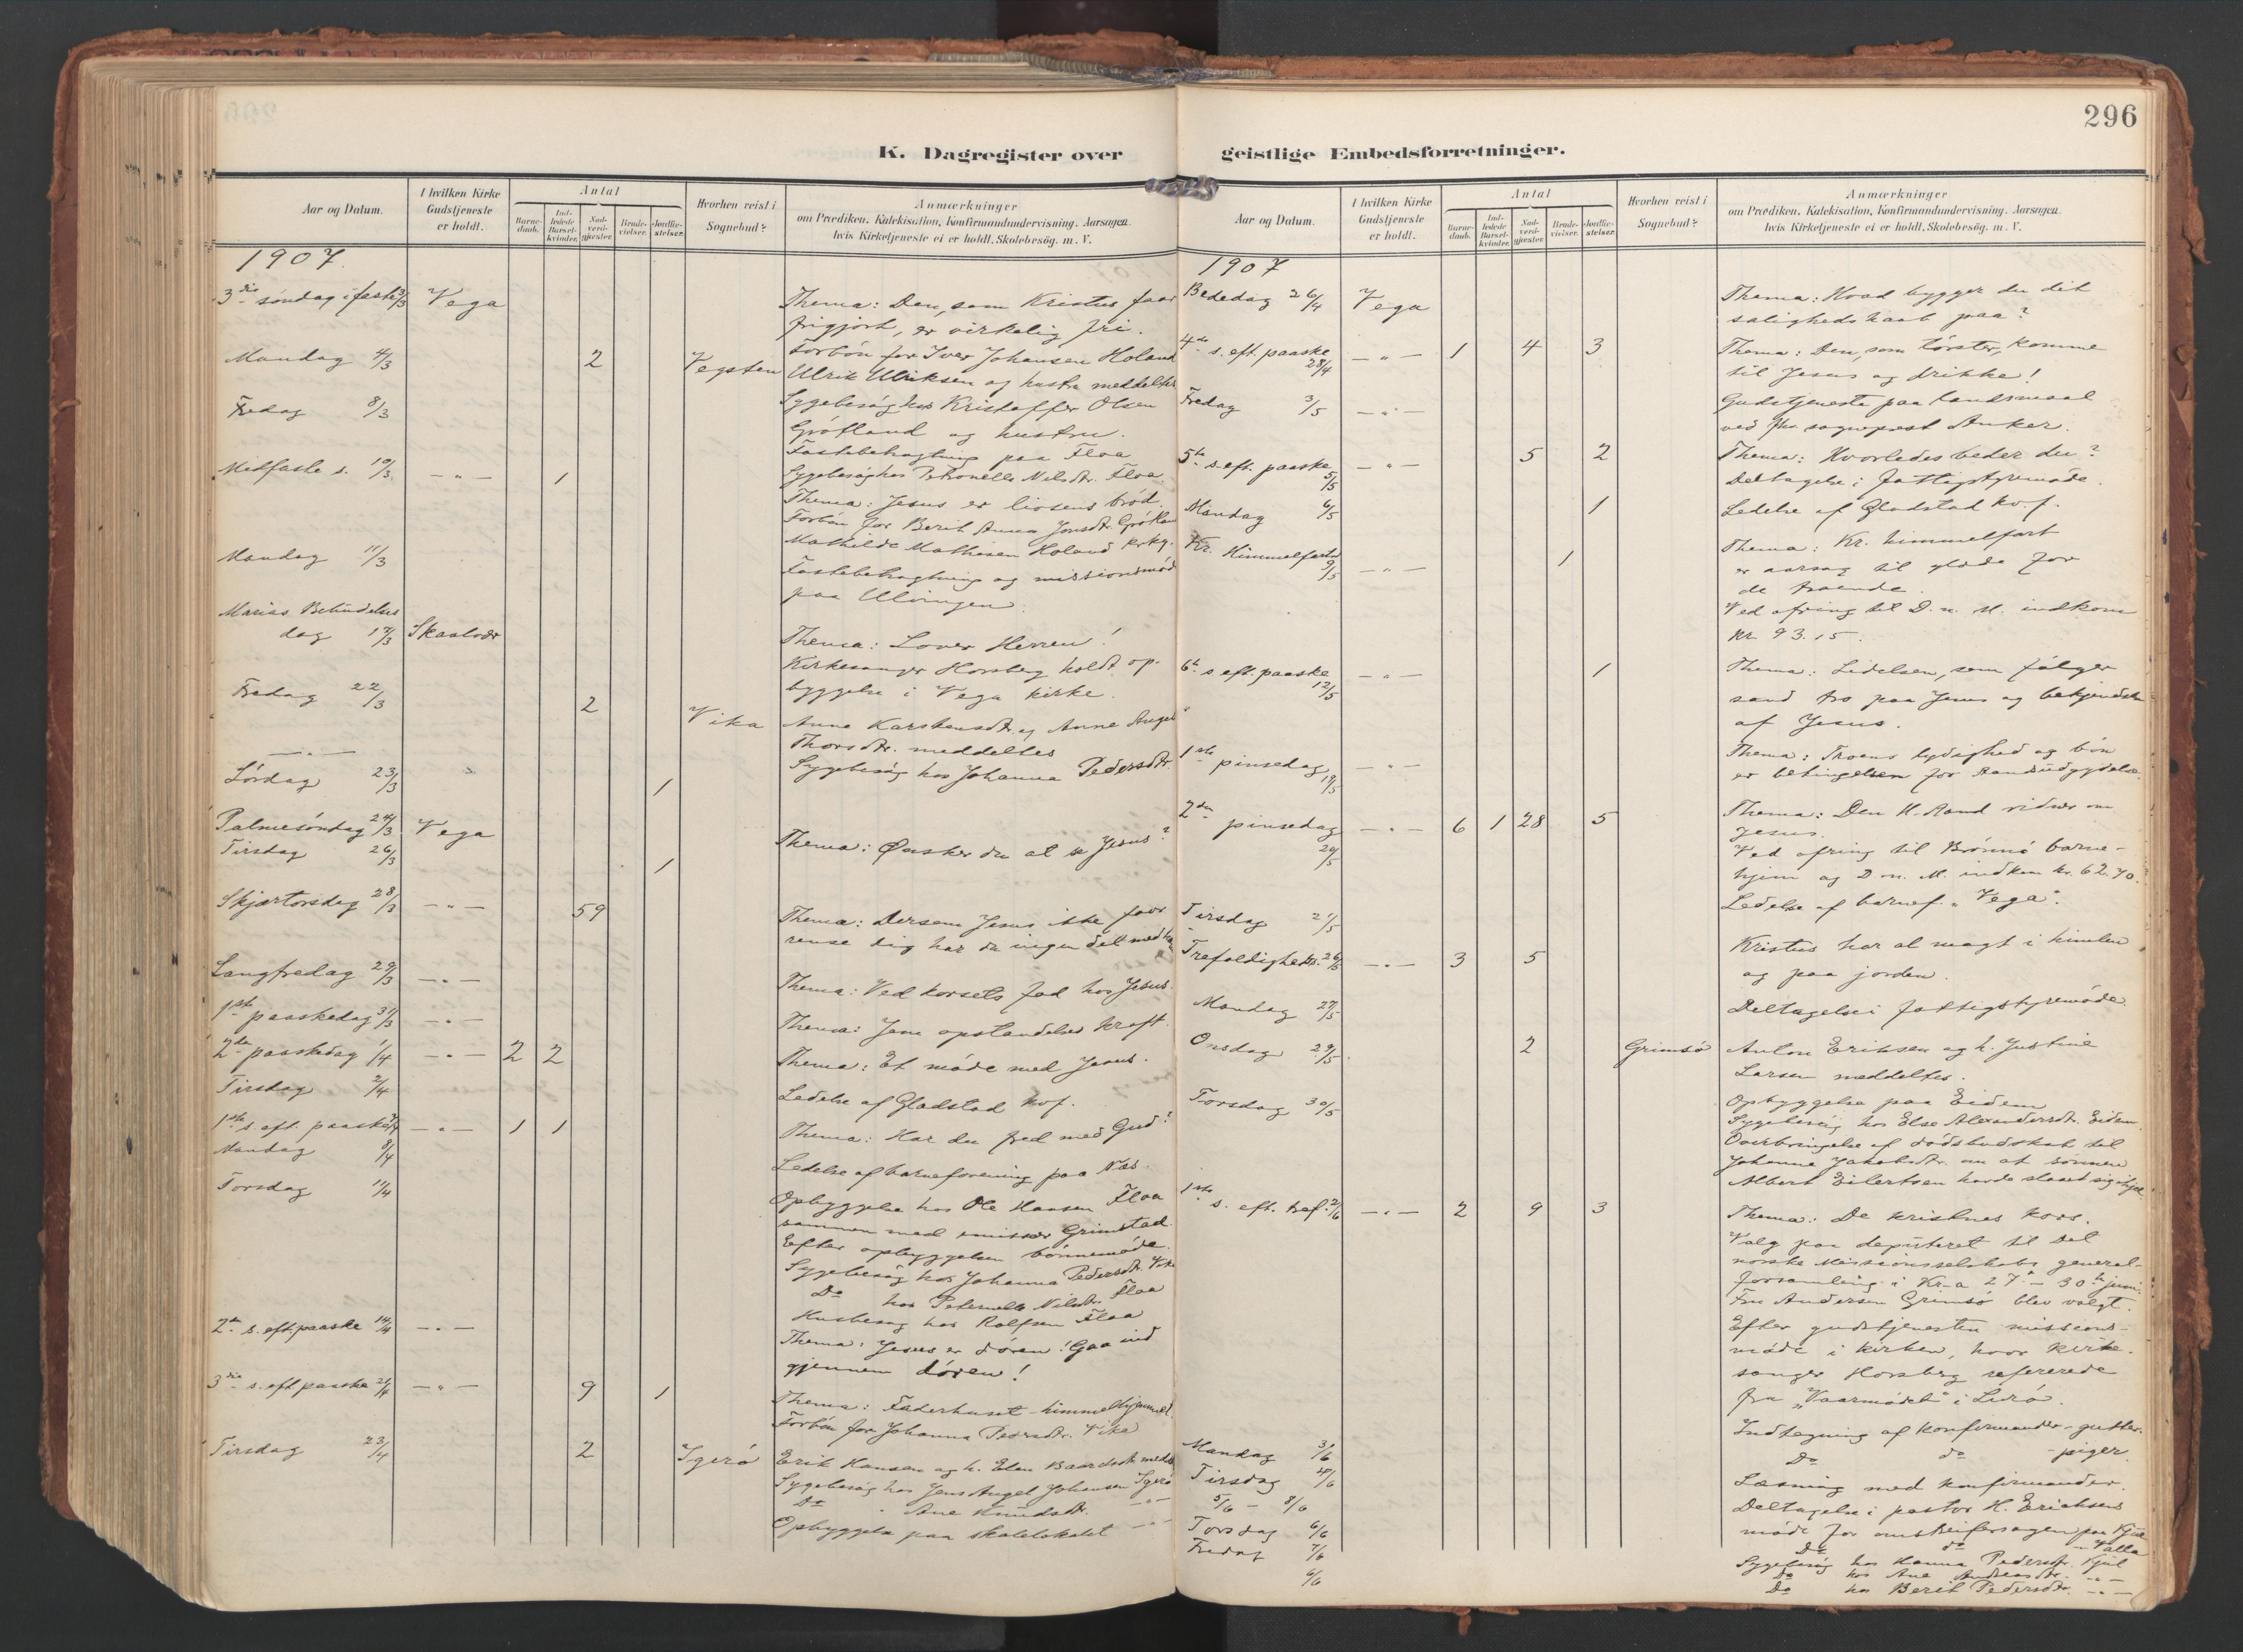 296
K. Dagregister over geistlige Embedsforretninger.
Aar og Datum.
I hvilken Kirke Gudstjeneste er holdt.
Antal
Barnedaab.
Indledede Barselkvinder.
Nadverdgjester.
Brudevielser.
Jordfæstelser.
Hvorhen reist i Sognebud?
Anmærkninger
om Prædiken, Katekisation, Konfirmandundervisning. Aarsagen,
hvis Kirketjeneste ei er holdt. Skolebesøg. m. V.
1907.
3die søndag i faste 3/3 Vega
Thema: Den, som Kristus faar
frigjort, er virkelig fri.
Forbøn for Iver Johansen Holand
Mandag 4/3 2 Vegsten
Ulrik Ulriksen og hustru meddeltes
Fredag 8/3
Sygebesøg hos Kristoffer Olsen
Grøtland og hustru.
Fastebetragtning paa Floa
Sygebesøg hos Petronelle Nilsdtr. Floa.
Midfaste s. 10/3 — " — 1
Thema: Jesus er livsens brød.
Forbøn for Berit Anna Jonsdtr.
Mathilde Mathisen Holand
Mandag 11/3
Fastebetragtning og missionsmøde
paa Ulvingen.
Marias Bebudelses
dag 17/3 Skaalvær
Thema: Lover Herren!
Kirkesanger Horsberg holdt op-
byggelse i Vega kirke.
Fredag 22/3 2 Vika
Anne Karstensdtr. og Anne Angel
Thorsdtr. meddeltes
— " —
Sygebesøg hos Johanna Pedersdtr.
Lørdag 23/3 1
Palmesøndag 24/3 Vega
Thema: Ønsker du at se Jesus?
Tirsdag 26/3 1
Skjærtorsdag 28/3 — " — 59
Thema: Dersom Jesus ikke faar
rense dig har du ingen del med ham
Langfredag 29/3 — " —
Thema: Ved korsets fod hos Jesus.
1ste paaskedag 31/3 — " —
Thema: Jesu opstandelses kraft.
2den paaskedag 1/4 — " — 2 2
Thema: Et møde med Jesus.
Tirsdag 2/4
Ledelse af Gladstad kvf.
1ste s. eft. paaske 7/4 — " — 1 1
Thema: Har du fred med Gud?
Mandag 8/4
Ledelse af barneforening paa Næs.
Torsdag 11/4
Opbyggelse hos Ole Hansen Floa
sammen med emissær Grimstad.
Efter opbyggelsen bønnemøde.
Sygebesøg hos Johanna Pedersdtr. Vika
Do hos Petronelle Nilsdtr. Floa
Husbesøg hos Rolfsen Floa
2den s. eft. paaske 14/4 — " —
Thema: Jesus er døren! Gaa ind
gjennem døren!
3die s. eft. paaske 21/4 — " — 9 1
Thema: Faderhuset – himmelhjemmet.
Forbøn for Johanna Pedersdtr. Vika
Tirsdag 23/4 2 Igerø
Erik Hansen og h. Elen Baardsdtr. medd.
Sygebesøg hos Jens Angel Johansen Igerø
Do " Ane Knudsdtr. — " —
Opbyggelse paa skolelokalet — " —
Aar og Datum.
I hvilken Kirke Gudstjeneste er holdt.
Antal
Barnedaab.
Indledede Barselkvinder.
Nadverdgjester.
Brudevielser.
Jordfæstelser.
Hvorhen reist i Sognebud?
Anmærkninger
om Prædiken, Katekisation, Konfirmandundervisning. Aarsagen,
hvis Kirketjeneste ei er holdt. Skolebesøg. m. V.
1907
Bededag 26/4 Vega
Thema: Hvad bygger du dit
salighedshaab paa?
4de s. eft. paaske 28/4 — " — 1 4 3
Thema: Den, som tørster, komme
til Jesus og drikke!
Fredag 3/5 — " —
Gudstjeneste paa landsmaal
ved hr. sogneprest Anker.
5te s. eft. paaske 5/5 — " — 5 2
Thema: Hvorledes beder du?
Deltagelse i fattigstyremøde.
Mandag 6/5 1
Ledelse af Gladstad kv.f.
Kr. Himmelfartsd. 9/5 — " — 1
Thema: Kr. himmelfart
er aarsag til glæde for
de troende.
Ved ofring til D. n. M. indkom
kr. 93.15.
6te s. eft. paaske 12/5 — " — 1
Thema: Lidelsen, som følger
sand tro paa Jesus og bekjendelse
af Jesus.
1ste pinsedag 19/5 — " —
Thema: Troens lydighed og bøn
er betingelsen for Aandsudgydelse.
2den pinsedag 20/5 — " — 6 1 28 5
Thema: Den H. Aand vidner om
Jesus.
Ved ofring til Brønnø barne-
hjem og D. n. M. indkom kr. 62.70.
Tirsdag 21/5
Ledelse af barnef. "Vega".
Trefoldigheds. 26/5 — " — 3 5
Kristus har al magt i himlen
og paa jorden.
Mandag 27/5
Deltagelse i fattigstyremøde.
Onsdag 29/5 2 Grimsø
Anton Eriksen og h. Justine
Larsen meddeltes.
Torsdag 30/5
Opbyggelse paa Eidem
Sygebesøg hos Else Alexandersdtr. Eidem.
Overbringelse af dødsbudskab til
Johanna Jakobsdtr. om at sønnen
Albert Eilertsen havde slaaet sig ihjel.
1ste s. eft. tref. 2/6 — " — 2 9 3
Thema: De kristnes kors.
Valg paa deputeret til Det
norske Missionsselskabs general-
forsamling i Kr-a 27de – 30te juni.
Fru Andersen Grimsø blev valgt.
Efter gudstjenesten missions-
møde i kirken, hvor kirke-
sanger Horsberg refererede
fra "Vaarmødet" i Lurø.
Mandag 3/6
Indtegning af konfirmander – gutter.
Tirsdag 4/6
Do do – piger.
5/6 – 8/6
Læsning med konfirmander.
Torsdag 6/6
Deltagelse i pastor H. Erichsens
møde for omstreifersagen paa Kjul
Fredag 7/6
Do do – Valla
6/6
Sygebesøg hos Hanna Pedersdtr. Kjul
Do hos Ane Andreasdtr. — " —
Do hos Berit Pedersdtr. — " —